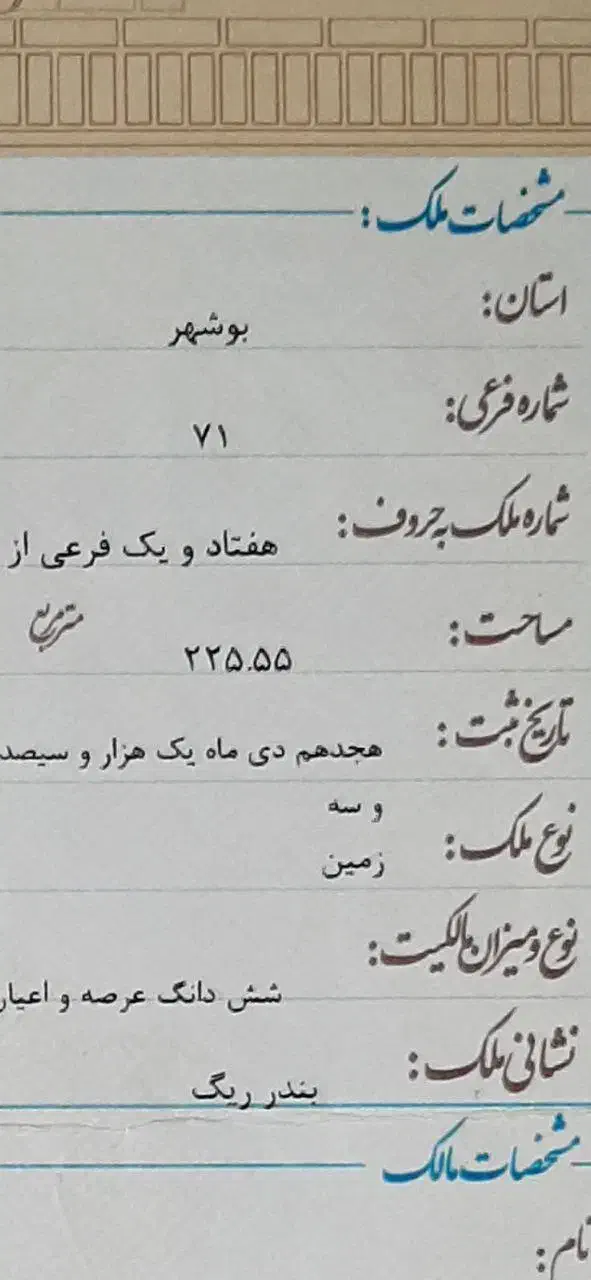 مشخصات ملک :
استان: بوشهر
شماره فرعی: ۷۱
شماره ملک به حروف: هفتاد و یک فرعی از
مساحت: ۲۲۵.۵۵ متر مربع
تاریخ ثبت: هجدهم دی ماه یک هزار و سیصد
و سه
نوع ملک: زمین
نوع و میزان مالکیت: شش دانگ عرصه و اعیان
نشانی ملک: بندر ریگ
مشخصات مالک
نام :